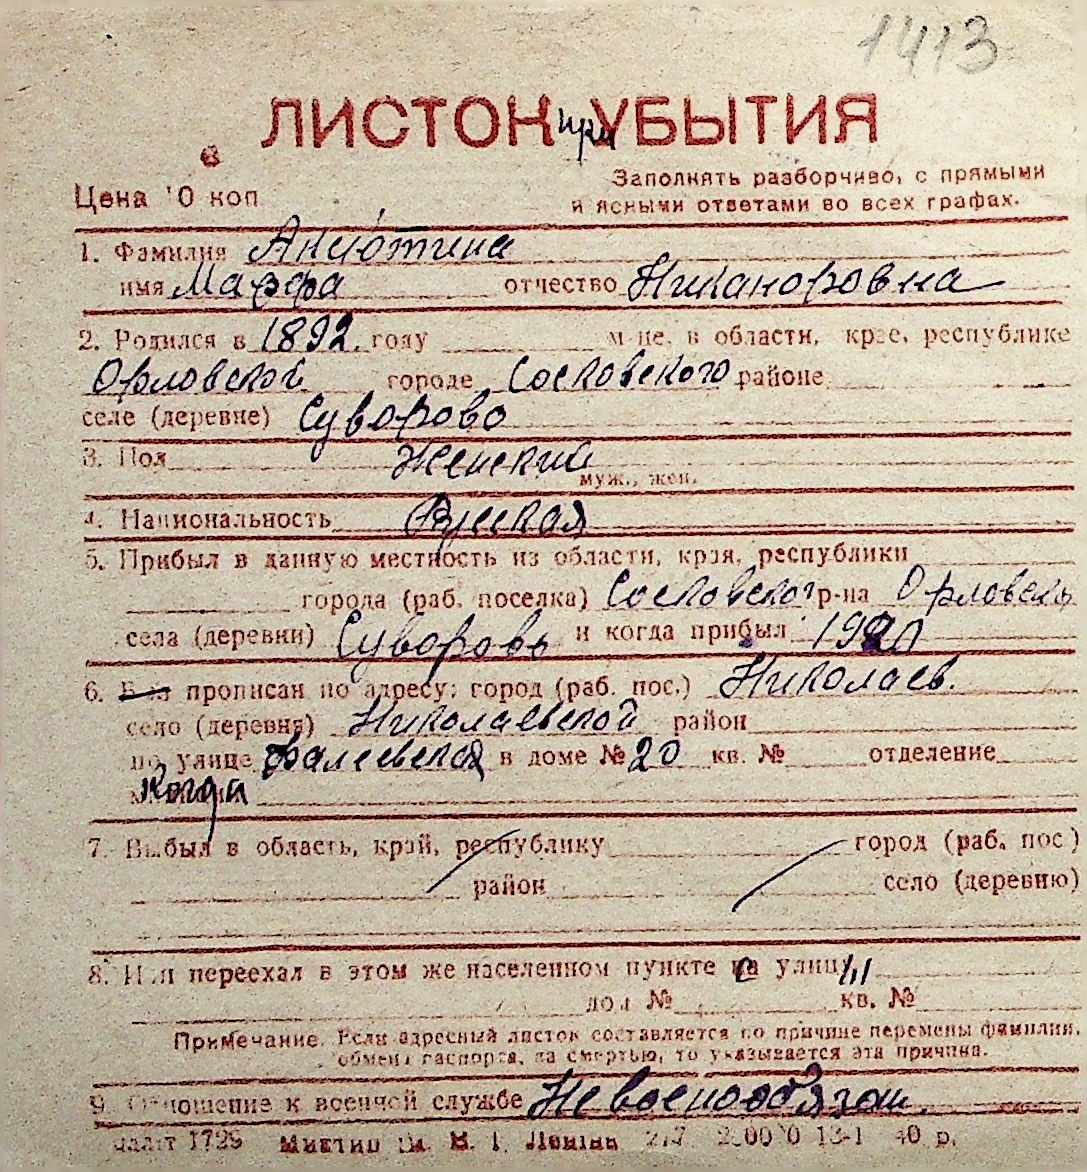 1413
ЛИСТОК при УБЫТИЯ
Цена 10 коп
Заполнять разборчиво, с прямыми
и ясными ответами во всех графах.
1. Фамилия Анютина
имя Марфа отчество Никаноровна
2. Родился в 1892 году м-це, в области, крае, республике
Орловской городе Сосковского районе
селе (деревне) Суворово
3. Пол Женский
муж., жен.
4. Национальность Руская
5. Прибыл в данную местность из области, края, республики
города (раб. поселка) Сосковского р-на Орловск
села (деревни) Суворовь и когда прибыл 1920
6. Был прописан по адресу: город (раб. пос.) Николаев.
село (деревня) Николаевской район
по улице Фалеевская в доме № 20 кв. № отделение
Когда
7. Выбыл в область, край, республику город (раб. пос.)
район село (деревню)
8. Или переехал в этом же населенном пункте с улицы
дом № кв. №
Примечание. Если адресный листок составляется по причине перемены фамилии,
обмена паспорта, за смертью, то указывается эта причина.
9. Отношение к военной службе Невоенообязан.
1729 В. И. Ленина 13-1 40 р.